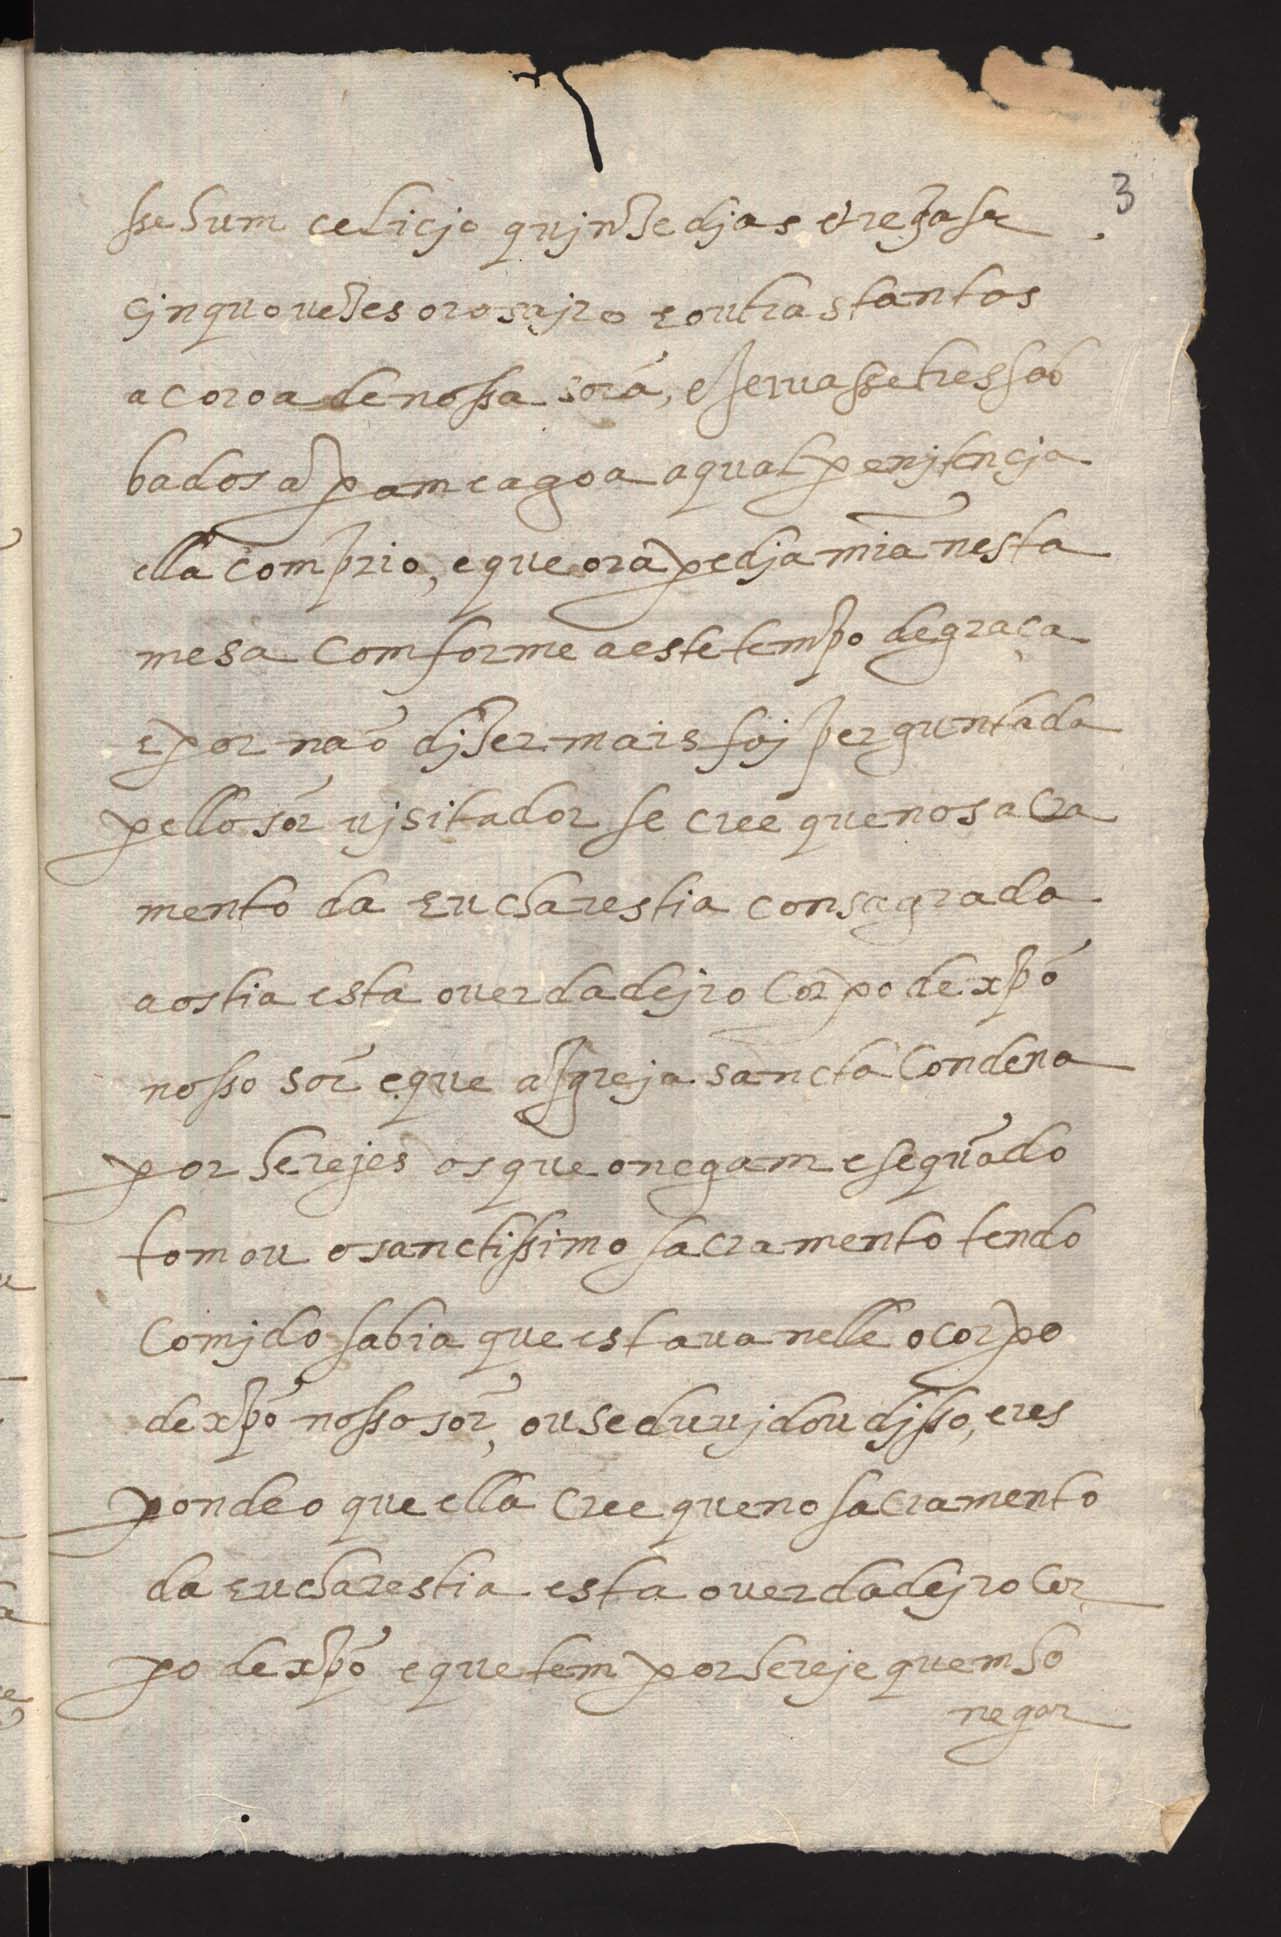 3
sse hum celicjo qujnze djas & rezase
cinquo vezes o rosajro e outras tantas
a coroa de nossa sorã, e jeiuasse tres sab
bados a pam e agoa a qual penjtencja
ella comprio, e que ora pedja mia nesta
mesa comforme a este tempo de graça
e por não djzer mais foj perguntada
pello sor vjsitador se cree que no sacra
mento da eucharestia consagrada
a ostia esta o verdadejro corpo de xpõ
nosso sor e que a Igreja sancta condena
por herejes os que o negam e se quãdo
tomou o sanctissimo sacramento tendo
comjdo sabia que estava nelle o corpo
de xpõ nosso sor, ou se duujdou djsso, e res
pondeo que ella cree que no sacramento
da eucharestia esta o verdadejro cor
po de xpõ e que tem por hereje quem ho
negar